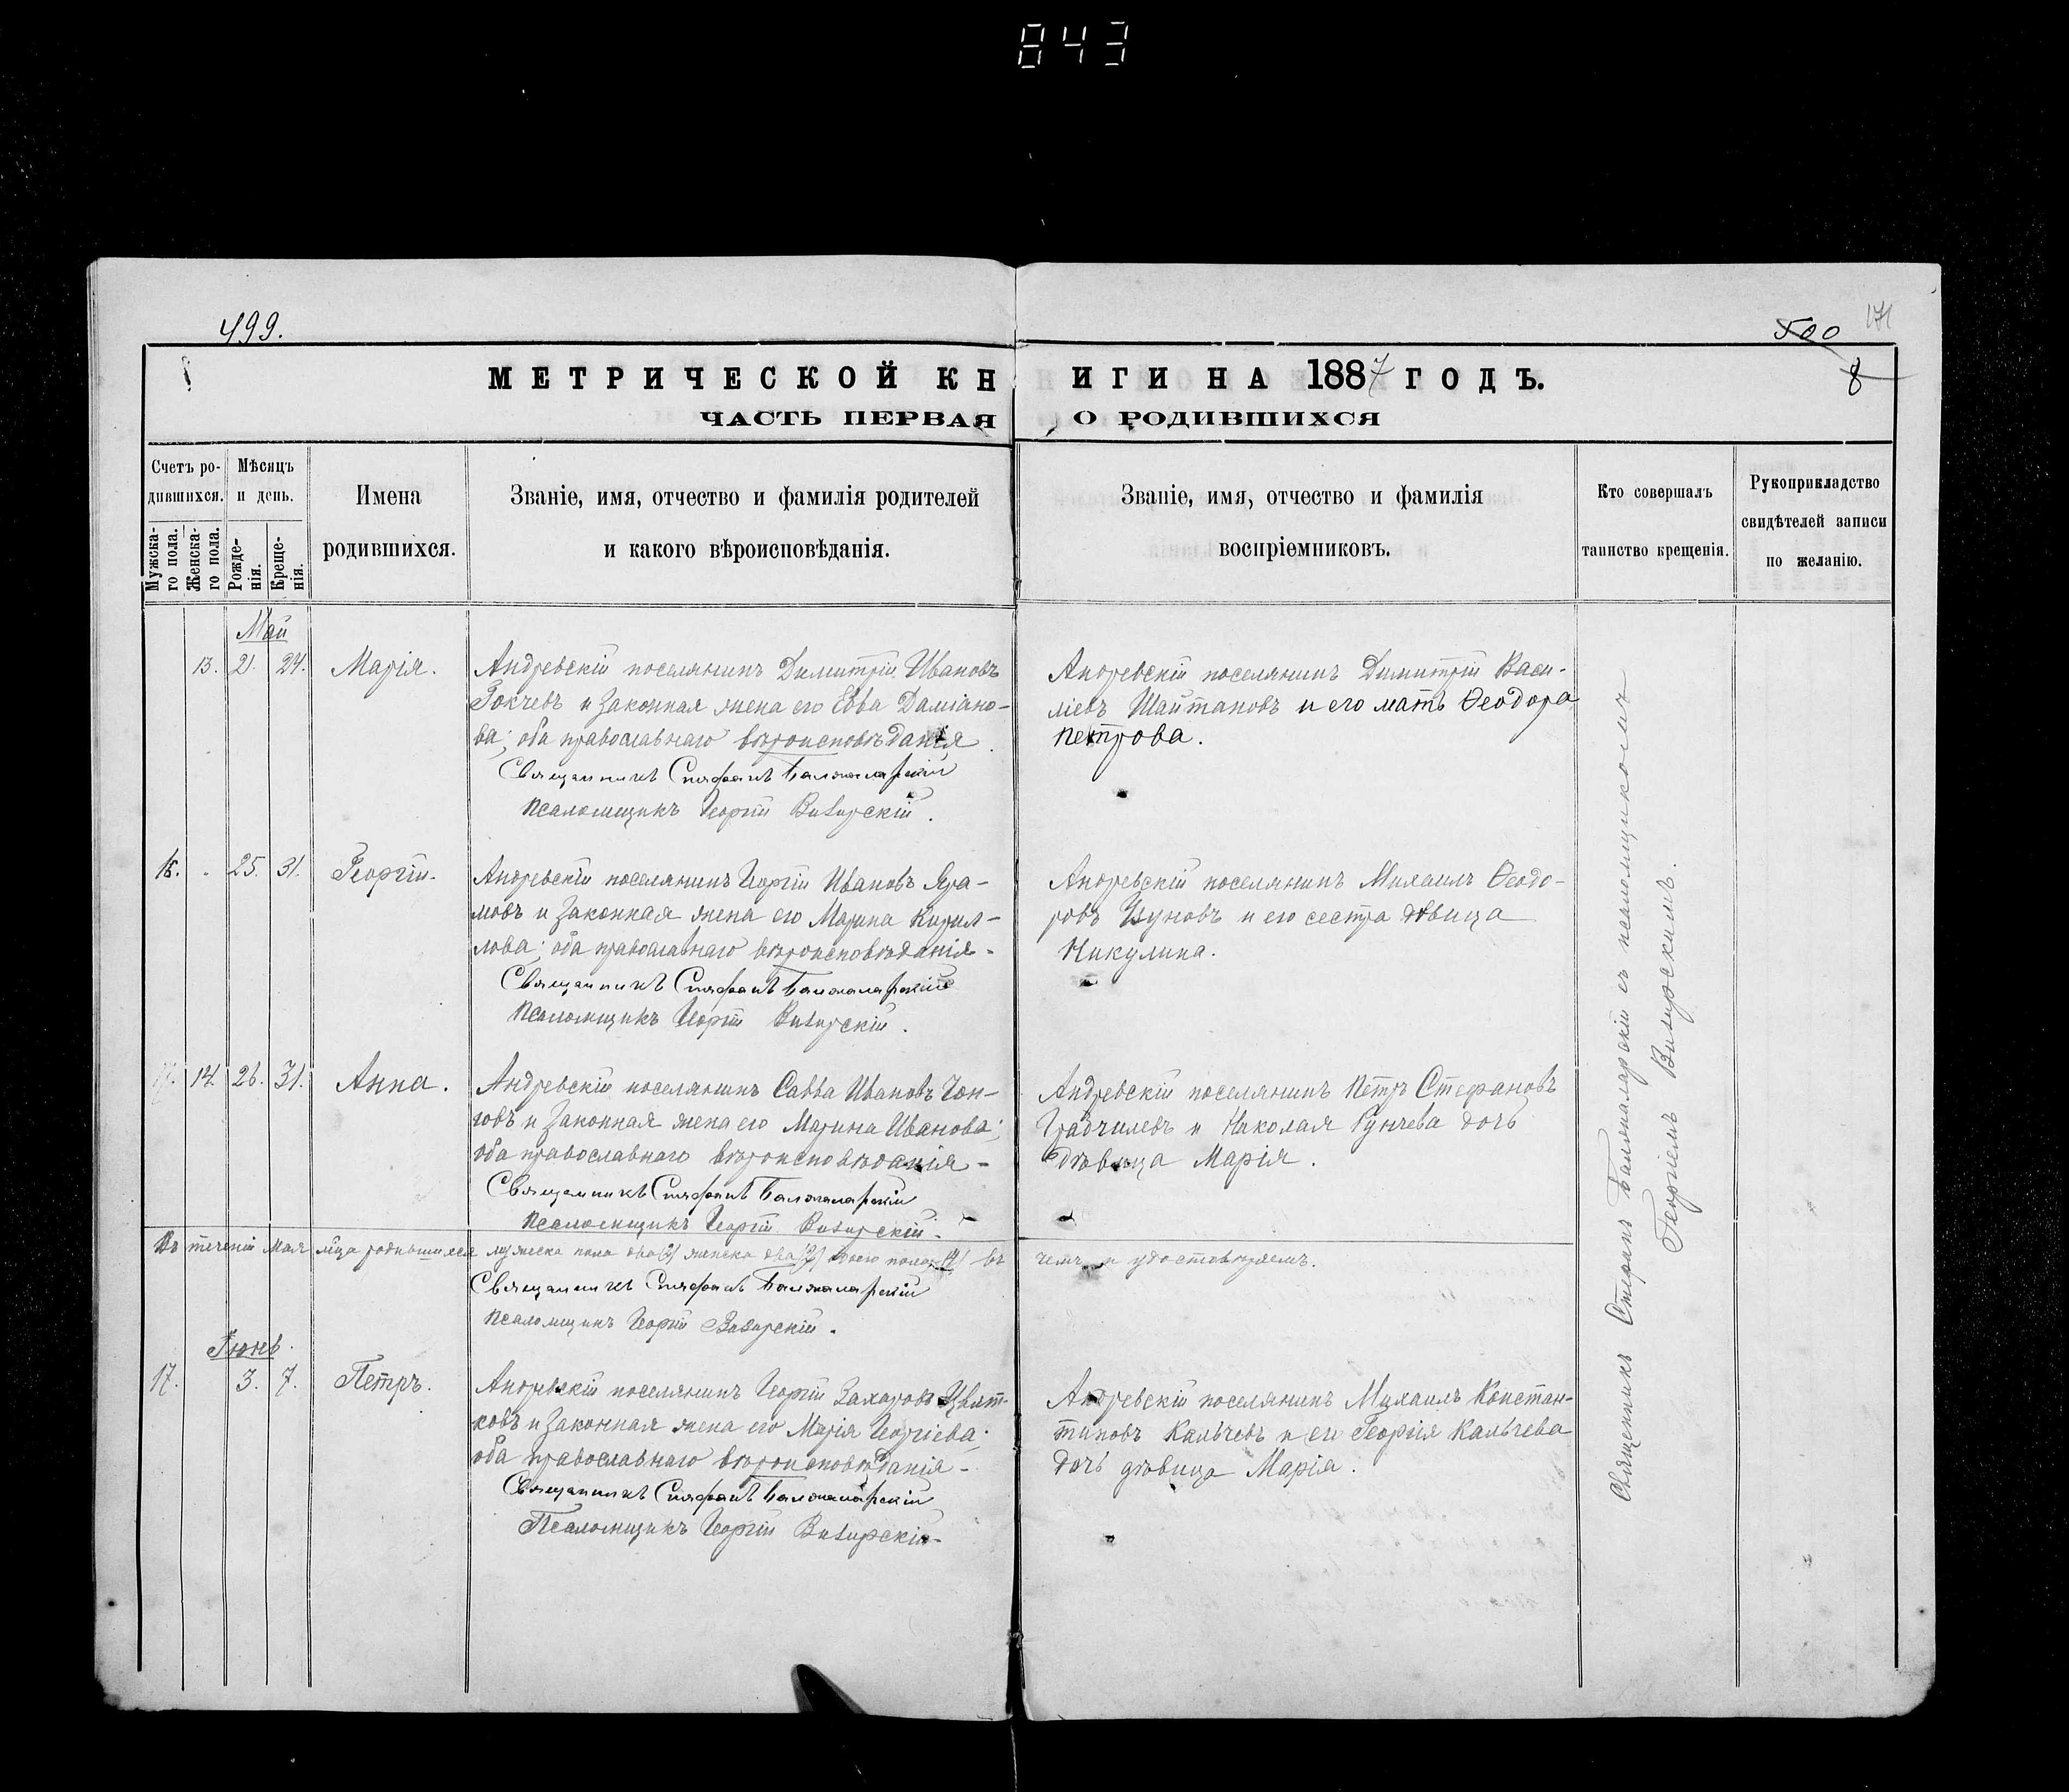 843
499.
500
171
8
МЕТРИЧЕСКОЙ КНИГИ НА 1887 ГОДЪ.
ЧАСТЬ ПЕРВАЯ, О РОДИВШИХСЯ
Счетъ ро-
дившихся.
Мужска-
го пола.
Женска-
го пола.
Мѣсяцъ
и день.
Рожде-
нія.
Креще-
нія.
Имена
родившихся.
Званіе, имя, отчество и фамилія родителей
и какого вѣроисповѣданія.
Званіе, имя, отчество и фамилія
воспріемниковъ.
Кто совершалъ
таинство крещенія.
Рукоприкладство
свидѣтелей записи
по желанію.
Май
13. 21. 24. Марія.
Андревскій поселянинъ Димитрій Ивановъ
Гокчевъ и законная жена его Евва Даміано-
ва; оба православнаго вѣроисповѣданія
Священникъ Стефанъ
Псаломщикъ Георгій Визирскій.
Андревскій поселянинъ Димитрій Васи-
ліевъ Шайтановъ и его мать Ѳеодора
Петрова.
16. 25. 31. Георгій.
Андревскій поселянинъ Георгій Ивановъ Яра-
мовъ и законная жена его Марина Кирил-
лова; оба православнаго вѣроисповѣданія-
Священникъ Стефанъ
Псаломщикъ Георгій Визирскій.
Андревскій поселянинъ Михаилъ Ѳеодо-
ровъ и его сестра дѣвица
Никулина.
14. 26. 31. Анна.
Андревскій поселянинъ Савва Ивановъ
и законная жена его Марина Иванова;
оба православнаго вѣроисповѣданія-
Священникъ Стефанъ
Псаломщикъ Георгій Визирскій.
Андревскій поселянинъ Петръ Стефановъ
Градчилевъ и Николая Рунчева дочь
дѣвица Марія.
Въ теченіи Мая м̃ца родившихся мужеска пола два (2) женска два (2) обоего пола (4) въ
чемъ и удостовѣряемъ.
Священникъ Стефанъ
Псаломщикъ Георгій Визирскій.
Іюнь.
17. 3. 7. Петръ.
Андревскій поселянинъ Георгій Захаровъ Цвят-
ковъ и законная жена его Марія Георгіева;
оба православнаго вѣроисповѣданія-
Священникъ Стефанъ
Псаломщикъ Георгій Визирскій-
Андревскій поселянинъ Михаилъ Констан-
тиновъ Кальчевъ и Георгія Кальчева
дочь дѣвица Марія.
Священникъ Стефанъ съ псаломщикомъ
Георгіемъ Визирскимъ.